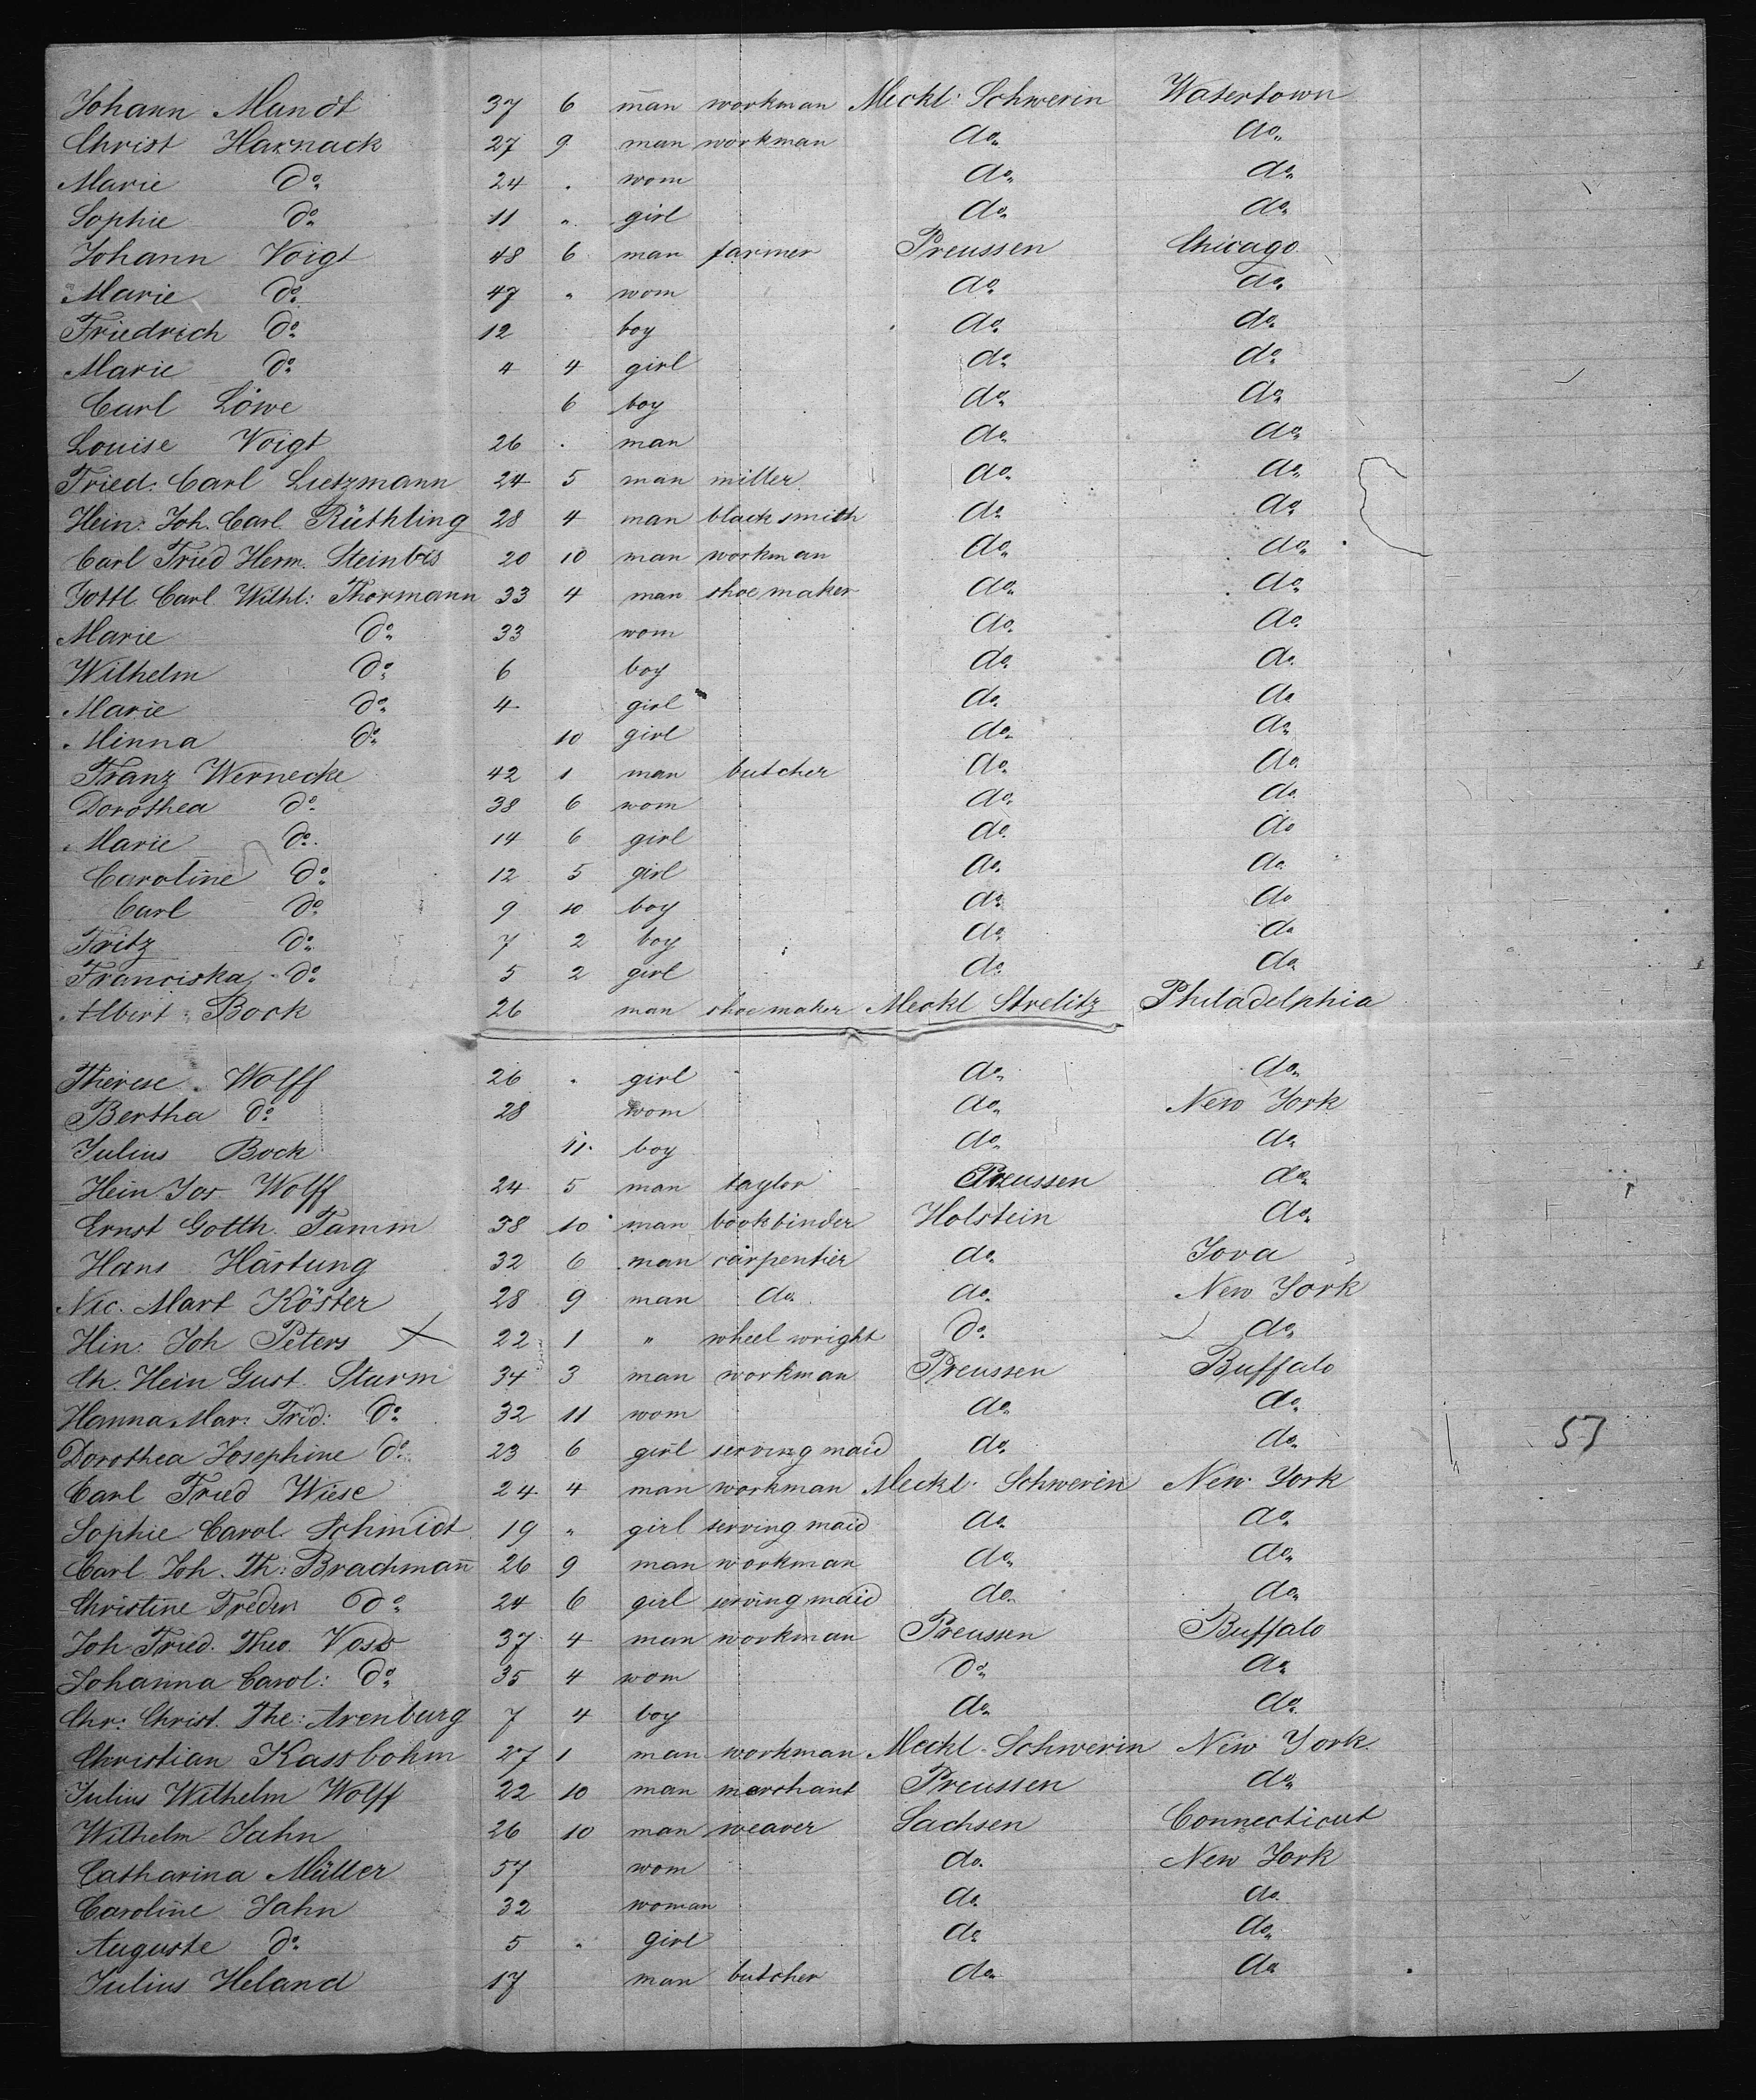 Johann Mundt 37 6 man workman Meckl. Schwerin Watertown
Christ Harnack 27 9 man workman do do
Marie do 24 " wom do do
Sophie do 11 " girl do do
Johann Voigt 48 6 man farmer Preussen Chicago
Marie do 47 " wom do do
Friedrich do 12 boy do do
Marie do 4 4 girl do do
Carl Löwe 6 boy do do
Louise Voigt 26 . man do do
Fried. Carl Lietzmann 24 5 man miller do do
Hein. Joh. Carl Rüthling 28 4 man black smith do do
Carl Fried Herm. Steinbris 20 10 man workman do do
Gottl. Carl Wilhl: Thormann 33 4 man shoe maker do do
Marie do 33 wom do do
Wilhelm do 6 boy do do
Marie do 4 girl do do
Minna do 10 girl do do
Franz Wernecke 42 1 man butcher do do
Dorothea do 38 6 wom do do
Marie do 14 6 girl do do
Caroline do 12 5 girl do do
Carl do 9 10 boy do do
Fritz do 7 2 boy do do
Franciska do 5 2 girl do do
Albert Bock 26 man shoe maker Meckl Strelitz Philadelphia
Therese Wolff 26 " girl do do
Bertha do 28 wom do New York
Julius Bock 11 boy do do
Hein Jos Wolff 24 5 man taylor Preussen do
Ernst Gotth. Tamm 38 10 man bookbinder Holstein do
Hans Härtung 32 6 man carpentier do Iova
Nic. Mart Köster 28 9 man do do New York
Hin. Joh Peters X 22 1 " wheel wright do do
Ch. Hein Gust. Sturm 34 3 man workman Preussen Buffalo
Hanna Mar: Frid: do 32 11 wom do do
Dorothea Josephine do 23 6 girl serving maid do do
57
Carl Fried Wiese 24 4 man workman Meckl. Schwerin New York
Sophie Carol. Schmidt 19 " girl serving maid do do
Carl Joh. Th: Brachmann̄ 26 9 man workman do do
Christine Freden do 24 6 girl serving maid do do
Joh Fried. Theo. Voss 37 4 man workman Preussen Buffalo
Johanna Carol: do 35 4 wom do do
Chr: Christ. The: Arenburg 7 4 boy do do
Christian Kassbohm 27 1 man workman Meckl. Schwerin New York
Julius Wilhelm Wolff 22 10 man merchant Preussen do
Wilhelm Jahn 26 10 man weaver Sachsen Connecticut
Catharina Müller 57 wom do New York
Caroline Jahn 32 woman do do
Auguste do 5 " girl do do
Julius Heland 17 man butcher do do